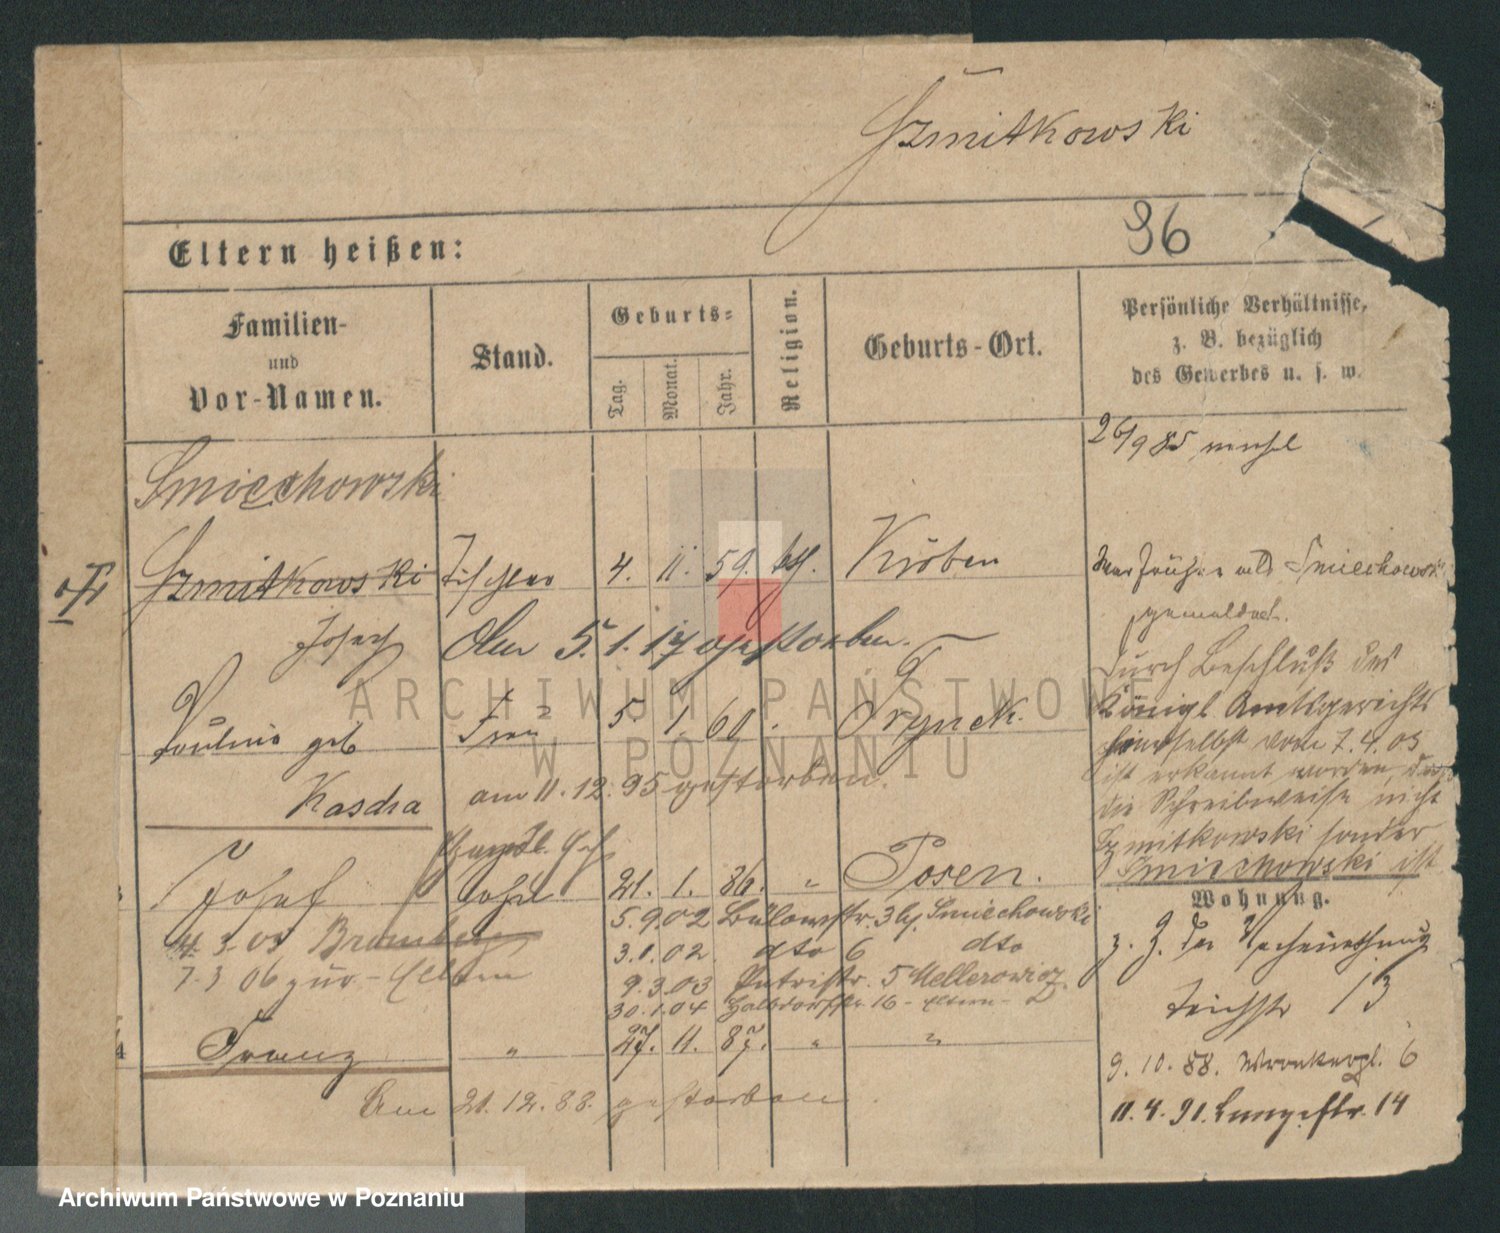 Szmitkowski
96
Eltern heißen:
Familien-
und
Vor-Namen.
Stand.
Geburts-
Tag.
Monat.
Jahr.
Religion.
Geburts-Ort.
Persönliche Verhältnisse,
z. B. bezüglich
des Gewerbes u. s. w.
26/9 85
Smiechowski
Szmitkowski Tischler 4. 11. 59. kth. Kröben
Josef Am 5. 1. 17 gestorben.
Pauline geb Frau 5 1. 60
Kascha am 11. 12. 95 gestorben.
Josef 21. 1. 86. " Posen.
5.9.02 Bülowstr. Smiechowski
4. 3. 03 Bromberg 3.1.02. dto 6 dto
7.3 06 zur - Eltern 9.3.03 5 Mellerowicz
30.1.04 16 - Eltern -
Franz " 27. 11. 87. " "
Am 21. 12. 88. gestorben.
War früher als Smiechowski
gemeldet.
Durch Beschluß des
Königl Amtsgerichts
hierselbst vom 7.4.03
ist erkannt worden, daß
die Schreibweise nicht
Szmitkowski sonder
Smiechowski ist
Wohnung.
z. Z. der
Teichstr 13
9. 10. 88. Wronkerpl. 6
11. 4. 91. Langestr. 14
ARCHIWUM PAŃSTWOWE
W POZNANIU
Archiwum Państwowe w Poznaniu